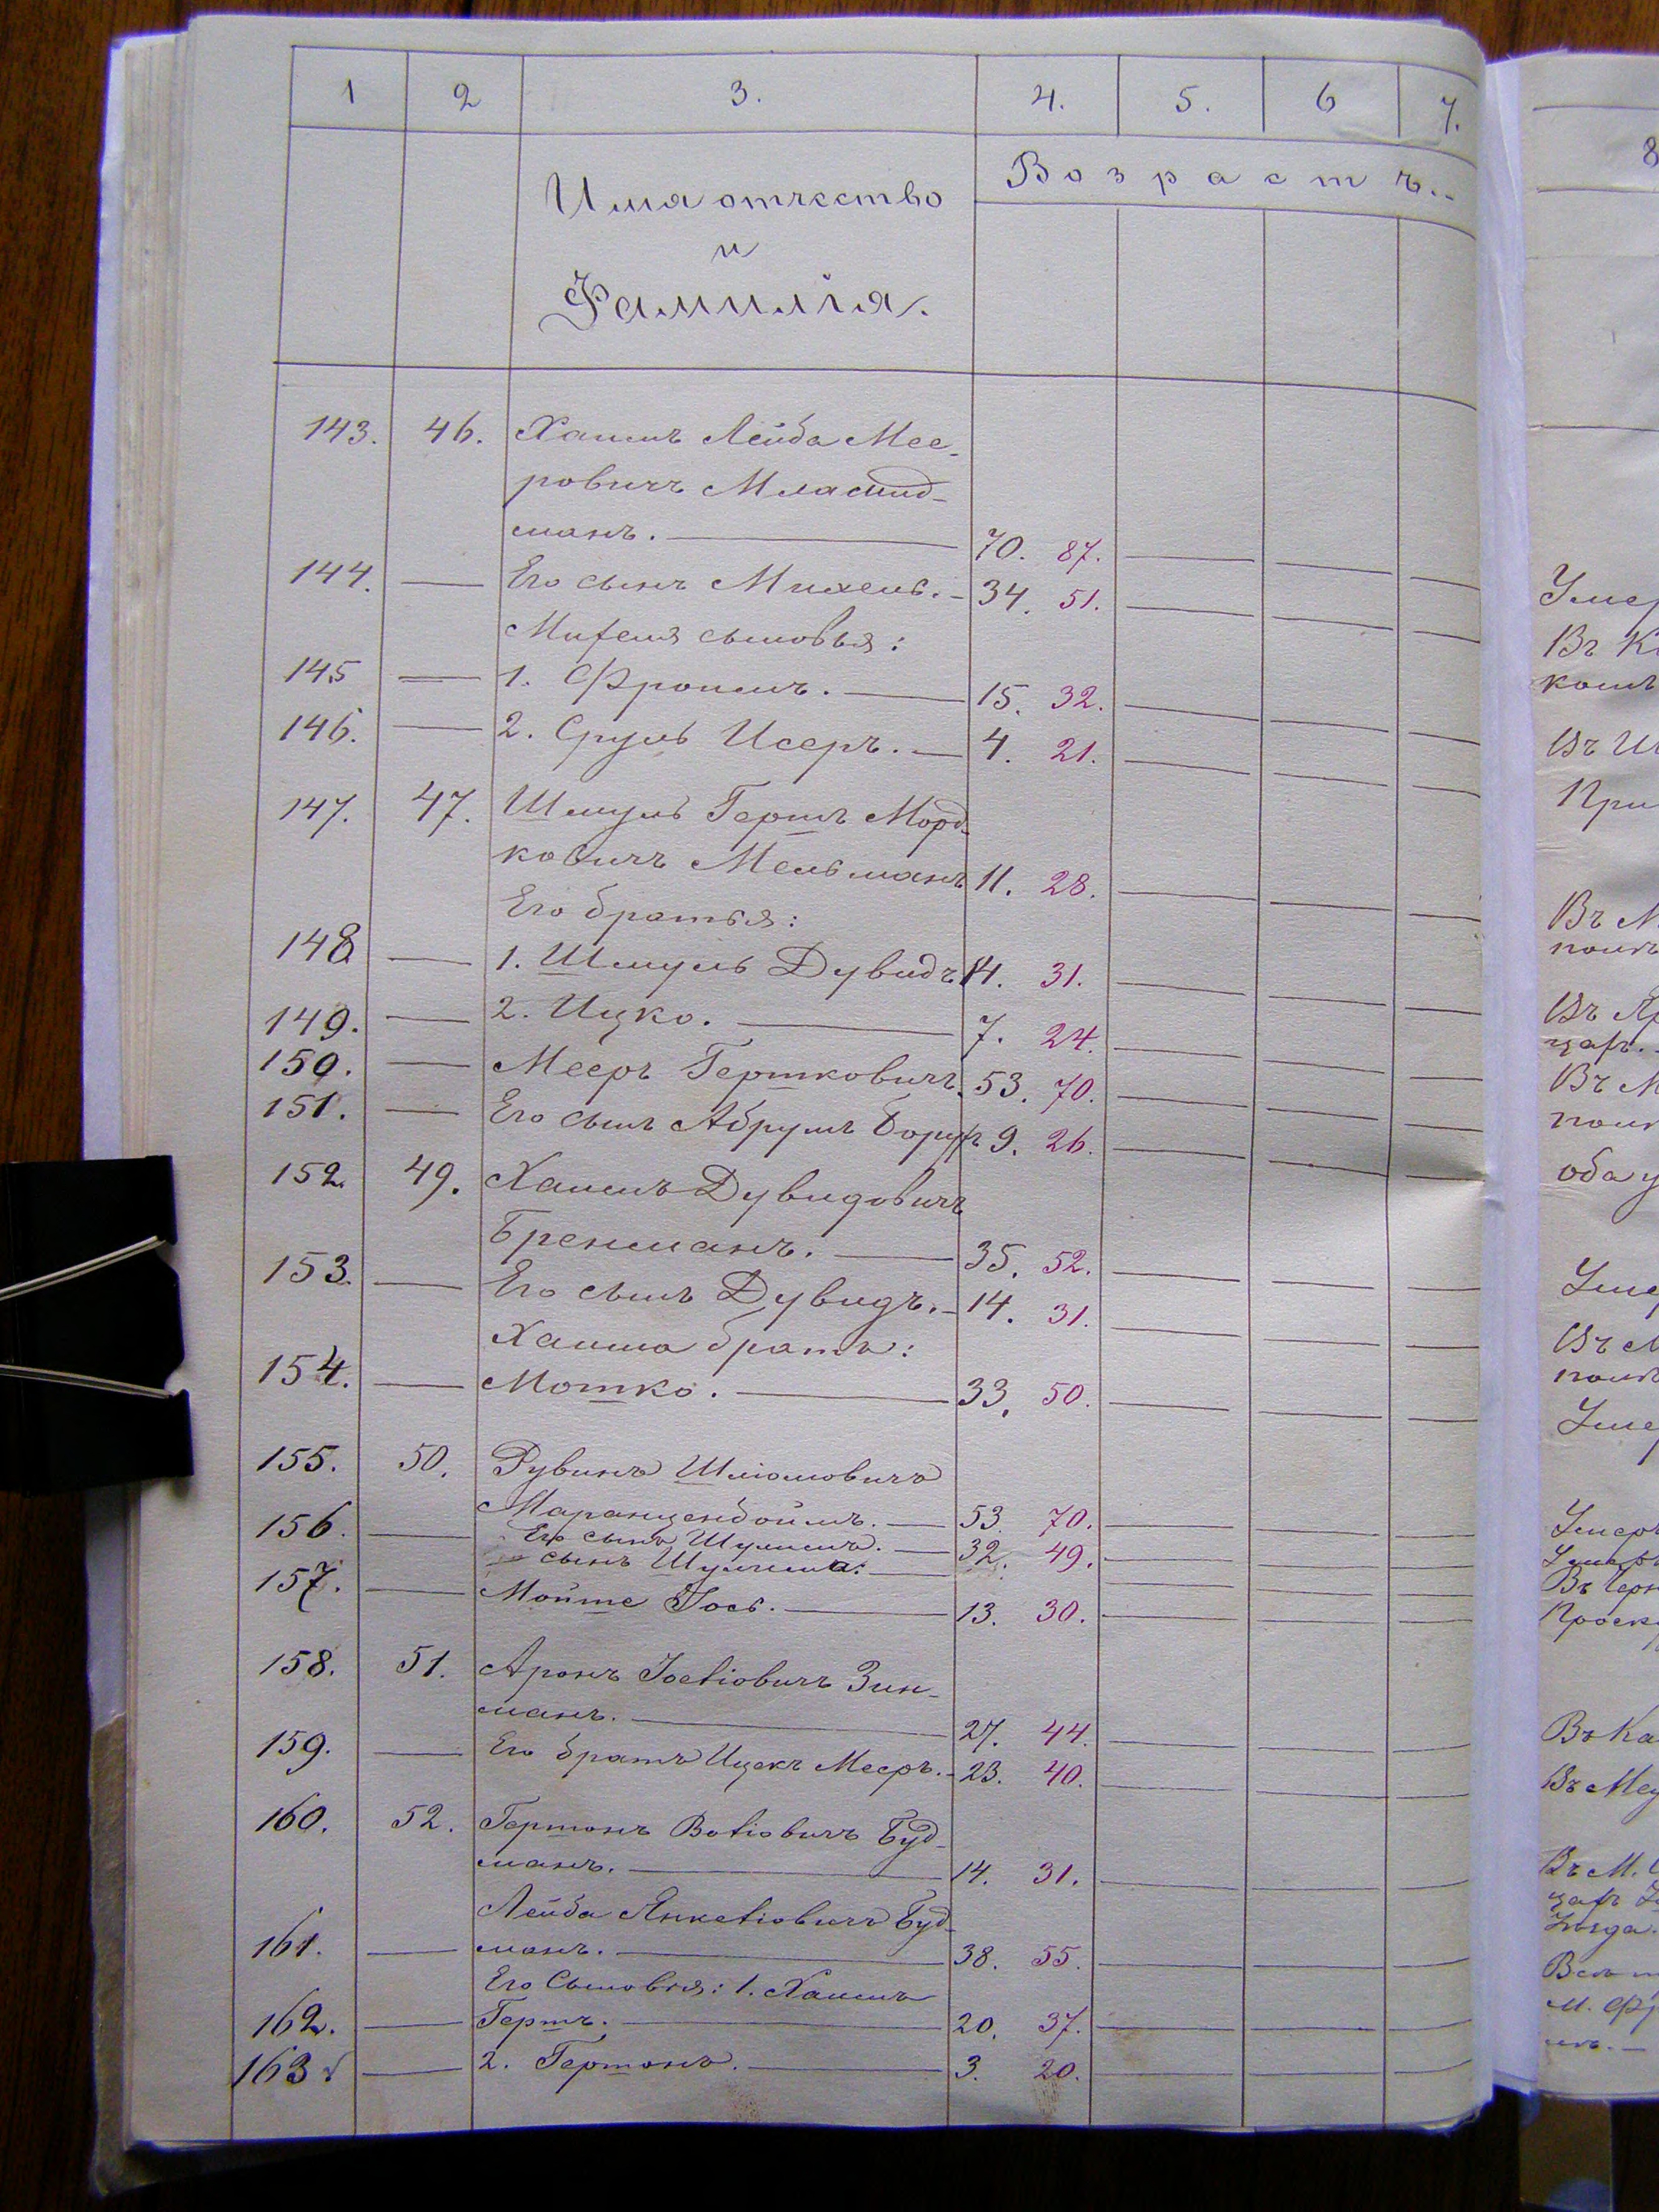 1 2 3. 4. 5. 6 7.
Имя отчество
и
Фамилія.
Возрастъ.
8
143. 46. Хаимъ Лейба Мее-
ровичъ
манъ. 70. 87.
144. Его сынъ Михель. 34. 51.
Михеля сыновья:
145 1. Фроимъ. 15. 32.
146. 2. Сруль Исеръ. 4. 21.
147. 47. Шмуль Гершъ Морд-
ковичъ Мельманъ 11. 28.
Его братья:
148 1. Шмуль Дувидъ 14. 31.
149. 2. Ицко. 7. 24.
150. Мееръ Гершковичъ 53. 70.
151. Его сынъ Абрумъ Борухъ 9. 26.
152. 49. Хаимъ Дувидовичъ
Бренманъ. 35. 52.
153. Его сынъ Дувидъ. 14. 31.
Хаима братъ:
154. Мошко. 33. 50.
155. 50. Рувинъ Шліомовичъ
Маранценбоймъ. 53. 70.
156. Его сынъ Шулимъ. 32. 49.
сынъ Шулима:
157. Мойше Іось. 13. 30.
158. 51. Аронъ Іосіовичъ Зин-
манъ. 27. 44.
159. Его братъ Ицекъ Мееръ. 23. 40.
160. 52. Гершонъ Вольіовичъ Буд-
манъ. 14. 31.
Лейба Янкеліовичъ Буд-
161. манъ. 38. 55.
Его Сыновья: 1. Хаимъ
162. Гершъ. 20. 37.
163. 2. Гершонъ. 3. 20.